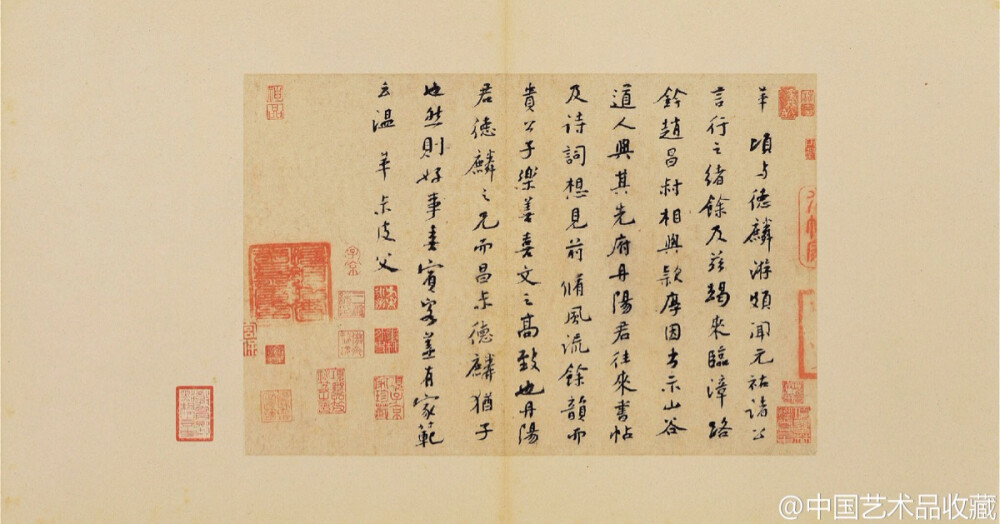 華頃与德麟游頗聞元祐諸公
言行之緒餘及茲朅來臨漳路
鈐趙昌尗相與欵摩因出示山谷
道人與其先府丹陽君往來書帖
及詩詞想見前脩風流餘韻而
貴公子樂善喜文之高致也丹陽
君德麟之兄而昌尗德麟猶子
也然則好事喜賓客盖有家範
云溫華尗皮父
@中国艺术品收藏